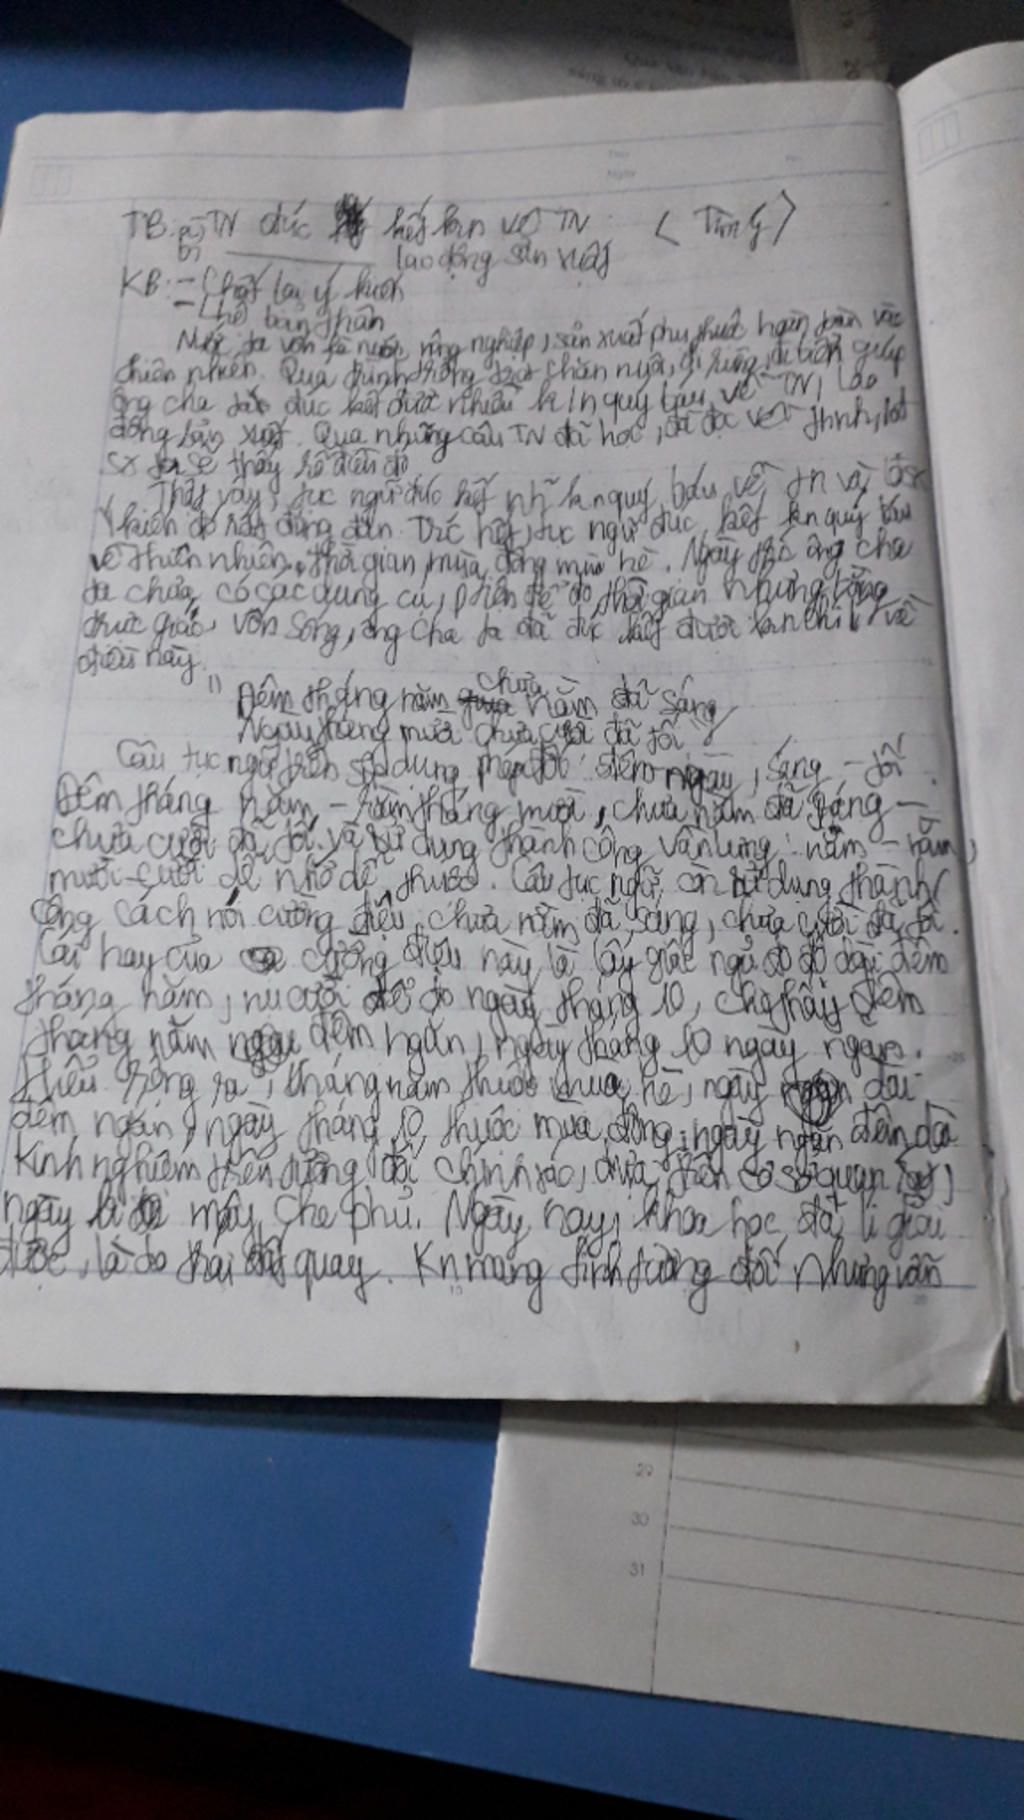 TB: a) TN đúc kết kn về TN < Tìm ý >
b) lao động sản xuất
KB: - Chốt lại ý kiến
- L hệ bản thân
Nước ta vốn là nước nông nghiệp, sản xuất phụ thuộc hoàn toàn vào
thiên nhiên. Qua trình trồng trọt chăn nuôi, đi rừng, đi biển giúp
ông cha đúc kết được nhiều k/n quý báu về TN, lao
động sản xuất. Qua những câu TN đã học, đã đọc về
sx ta sẽ thấy rõ điều đó
Thật vậy, tục ngữ đúc kết kn quý báu về tn và lđsx
Ý kiến đó rất đúng đắn. Trc hết, tục ngữ đúc kết kn quý báu
về thiên nhiên, thời gian mùa đông mùa hè. Ngày trc ông cha
ta chưa có các dụng cụ, để đo thời gian nhưng bằng
trực giác, vốn sống, ông cha ta đã đúc kết được về
điều này.
1) Đêm tháng năm chưa nằm đã sáng
Ngày tháng mười chưa cười đã tối
Câu tục ngữ trên sử dụng phép đối: đêm - ngày, sáng - tối.
Đêm tháng năm - tháng mười, chưa nằm đã sáng -
chưa cười đã tối và sử dụng thành công vần lưng: năm - nằm,
mười - cười dễ nhớ dễ thuộc. Câu tục ngữ còn sử dụng thành
công cách nói cường điệu: chưa nằm đã sáng, chưa cười đã tối.
Cái hay của cường điệu này là lấy giấc ngủ để đo độ dài đêm
tháng năm, nụ cười để đo ngày tháng 10, cho thấy đêm
tháng năm đêm ngắn, ngày tháng 10 ngày ngắn.
Hiểu rộng ra, tháng năm thuộc mùa hè, ngày dài
đêm ngắn, ngày tháng 10 thuộc mùa đông: ngày ngắn đêm dài
Kinh nghiệm trên tương đối chính xác, dựa trên cơ sở quan sát,
ngày bị mây che phủ. Ngày nay, khoa học đã lí giải
được, là do trái đất quay. Kn mang tính tương đối nhưng vẫn
29
30
31